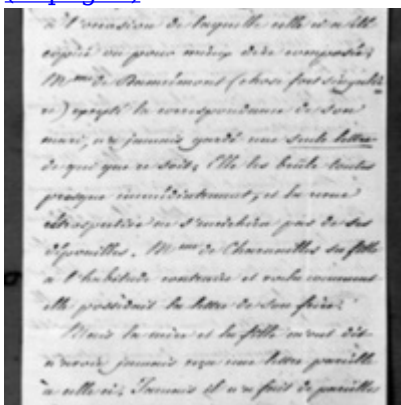 à l'occasion de laquelle celle-ci a été
copiée ou pour mieux dire composée;
Mme de (chose fort singuliè
re) excepté la correspondance de son
mari, n'a jamais gardé une seule lettre
de qui que ce soit; Elle les brûle toutes
presque immédiatement, et la
rétrospective ne s'enrichira pas de ses
dépouilles. Mme de sa fille
a l'habitude contraire et voilà comment
elle possédait la lettre de son frère.
Mais la mère et la fille m'ont dit
n'avoir jamais reçu une lettre pareille
à celle-ci; Jamais il n'a fait de pareilles